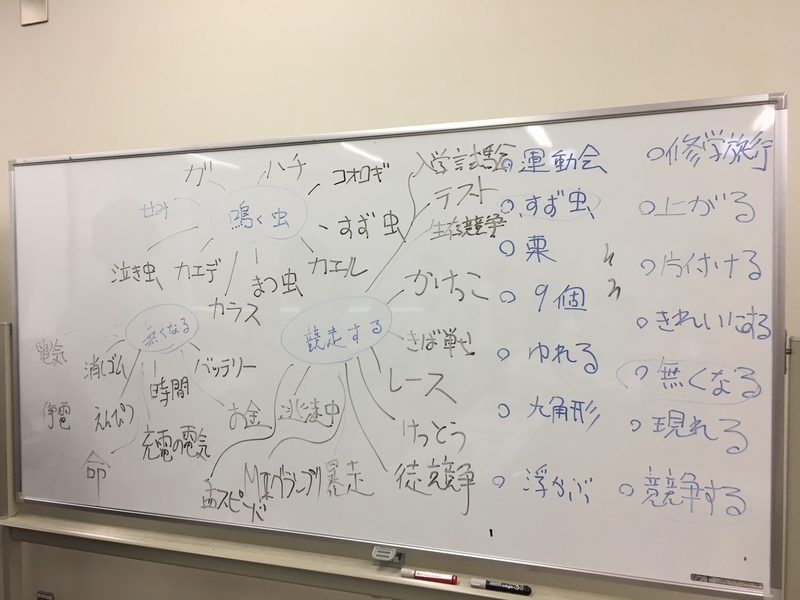 ガ
ハチ
コオロギ
せみ
鳴く虫
すず虫
泣き虫
カエデ
まつ虫
カエル
カラス
無くなる
電気
消しゴム
時間
バッテリー
停電
えんぴつ
充電の電気
お金
命
入学試験
テスト
生存競争
かけっこ
競走する
きば戦
レース
けっとう
徒競争
逃走中
暴走
○運動会
○すず虫
○栗
○9個
○ゆれる
○九角形
○浮かぶ
○修学旅行
○上がる
○片付ける
○きれいにする
○無くなる
○現れる
○競争する